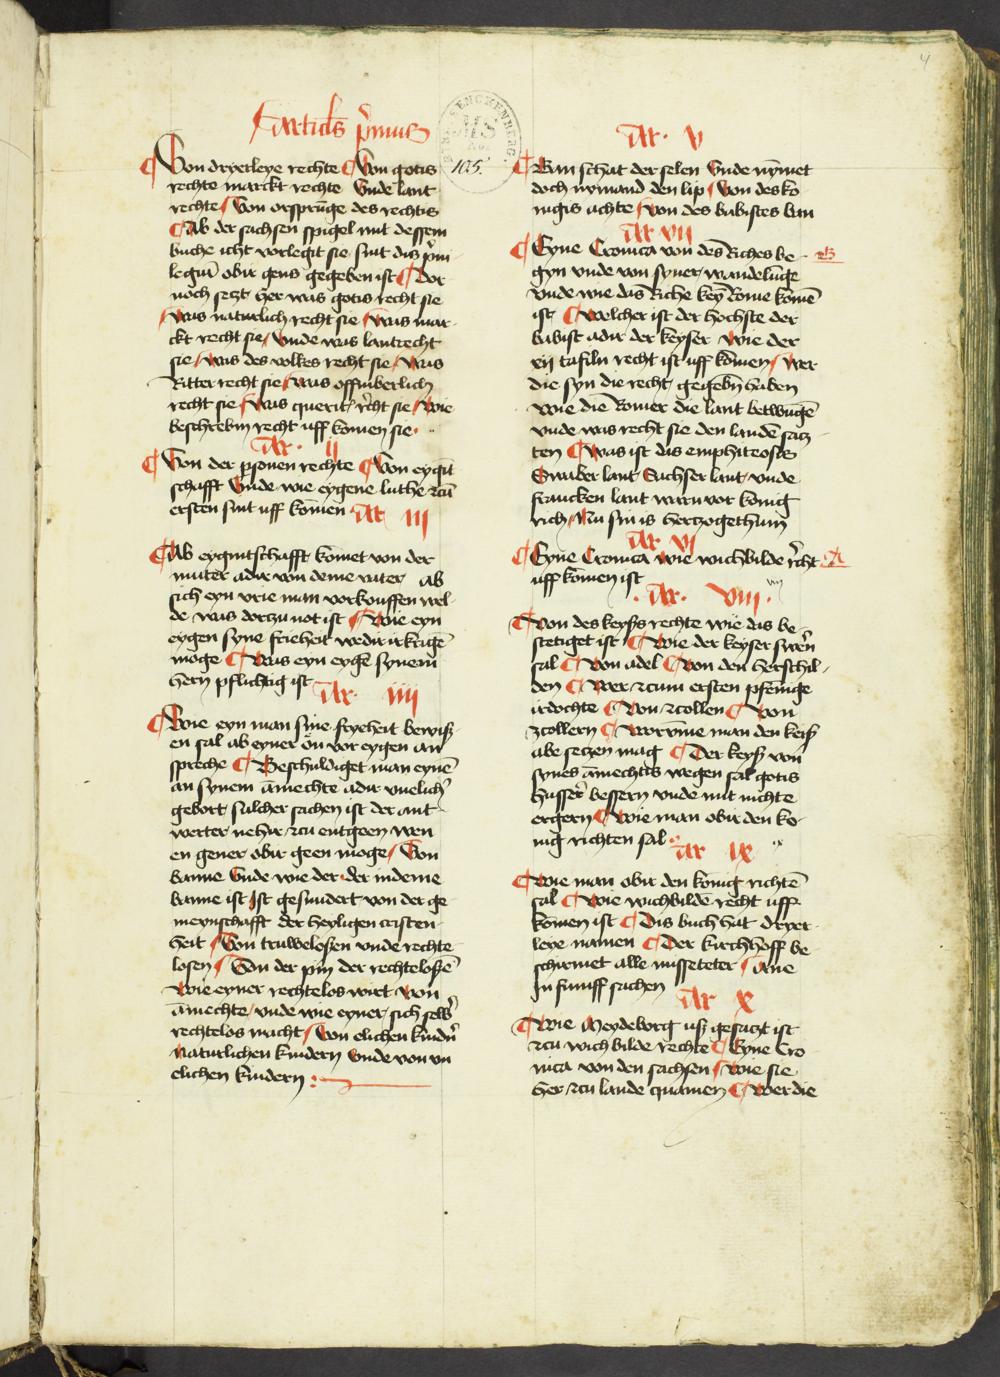 4
Articulus primus
BIBL. SENCKENBERG.
MS
105.
¶ Von dryerleye rechte ¶ Von gotis
rechte marckt rechte Vnde lant
rechte Von orsprūge des rechtis
¶ Ab der sachsen spigel mit dessem
buche icht vorlegit sie sint dis p̄ui
legiū obir gens gegeben ist ¶ Dor
noch seczt her was gotis recht sie
Was naturlich recht sie Was mar-
ckt recht sie Vnde was lantrecht
sie Was des volkes recht sie Was
Ritter recht sie Was offinberlich
recht sie Was querit r̄cht sie Wie
beschrebin recht uff komen sie
Ar. II
¶ Von der p̄sonen rechte ¶ Von eygīt
schafft Vnde wie eygene luthe zcū
ersten sint uff komen Ar III
¶ Ab eygintschafft komet von der
muter adir von deme vater ab
sich eyn vrie man vorkouffen wel-
de was dorzu not ist ¶ Wie eyn
eygen syne frieheit wedir irkrigē
moge ¶ Was eyn eygē synem
hern pflichtig ist Ar. IIII
¶ Wie eyn man sine fryeheit bewiß
en sal ab eyner ōn vor eygen an
spreche ¶ Beschuldiget man eynē
an synem amechte adir vnelich
gebort sulcher sachen ist der ant
werter nehir zcu entgeen wen
en gener obir geen moge Von
banne Vnde wie der der indeme
banne ist Ist gesundert von der ge
meynschafft der heyligen cristen
heit Von truwelosen vnde rechte
losen Von der pin der rechtelosē
Wie eyner rechtelos wirt Von
amechte vnde wie eyner sich selb̄
rechtelos macht Von elichen kindn̄
Naturlichen kindern Vnde von vn
elichen kindern
Ar. V
¶ Ban schat der selen Vnde nymet
doch nymand den lip Von des ko
nigis achte Von des babistes ban
Ar VII
¶ Eyne Cronica von des Riches be- B
gyn vnde von syner wandelūge
vnde wie das Riche keyn Rome komē
ist ¶ Welcher ist der hochste der
babist adir der keyser Wie der
xij tafiln recht ist uff komen Wer
die syn die recht gegebn̄ haben
Wie die Romer die lant betwūgē
vnde was recht sie den landē sacz-
ten ¶ Was ist das emphiteosis
Swaber lant Sachser lant vnde
francken lant warn vor konig
rich Nu sin is herczogethum
Ar VI
¶ Eyne Cronica wie wichbilde r̄cht A
uff komen ist
Ar. VIII
¶ Von des keys̄s rechte wie das be-
stetiget ist ¶ Wie der keyser swern̄
sal ¶ Von adel ¶ Von den herschil-
den ¶ Wer zcum ersten pfenige
irdochte ¶ Von zcollen ¶ Von
zcollern ¶ Worvme man den keiß
abe seczen mag ¶ Der keyß von
synes amechtis wegen sal gotis
husser bessern vnde mit nichte
ergern ¶ Wie man obir den ko-
nig richten sal
Ar IX
¶ Wie man obir den konig richtē
sal ¶ Wie wichbilde recht uff
komen ist ¶ Dis buch hat dryer-
leye namen ¶ Der kirchhoff be-
schirmet alle misseteter Ane
In funff sachen
Ar X
¶ Wie Meydeborg uß gesaczt ist
zcu wichbilde rechte ¶ Eyne Cro
nica von den sachsen Wie sie
her zcu lande quamen ¶ Wer die